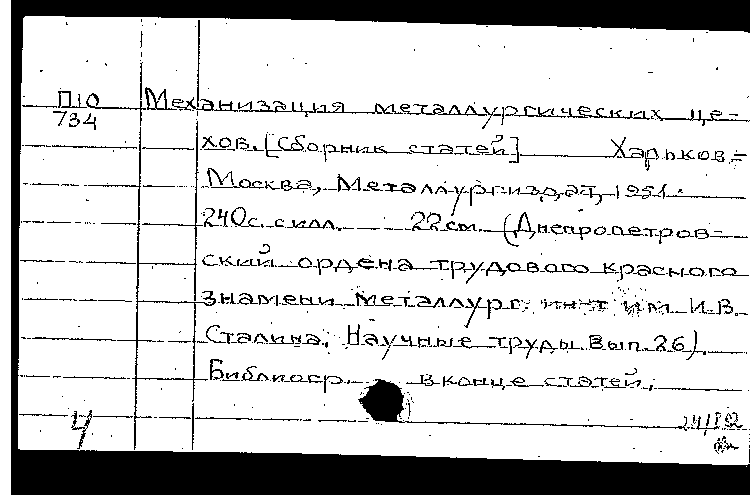 П10 Механизация металлургических це-
734
хов. [Сборник статей] Харьков-
Москва, Металлургиздат, 1951.
240с. с илл. 22см. (Днепропетров-
ский ордена трудового красного
знамени металлург. ин-т им. И.В.
Сталина. Научные труды. Вып. 26).
Библиогр. в конце статей.
4